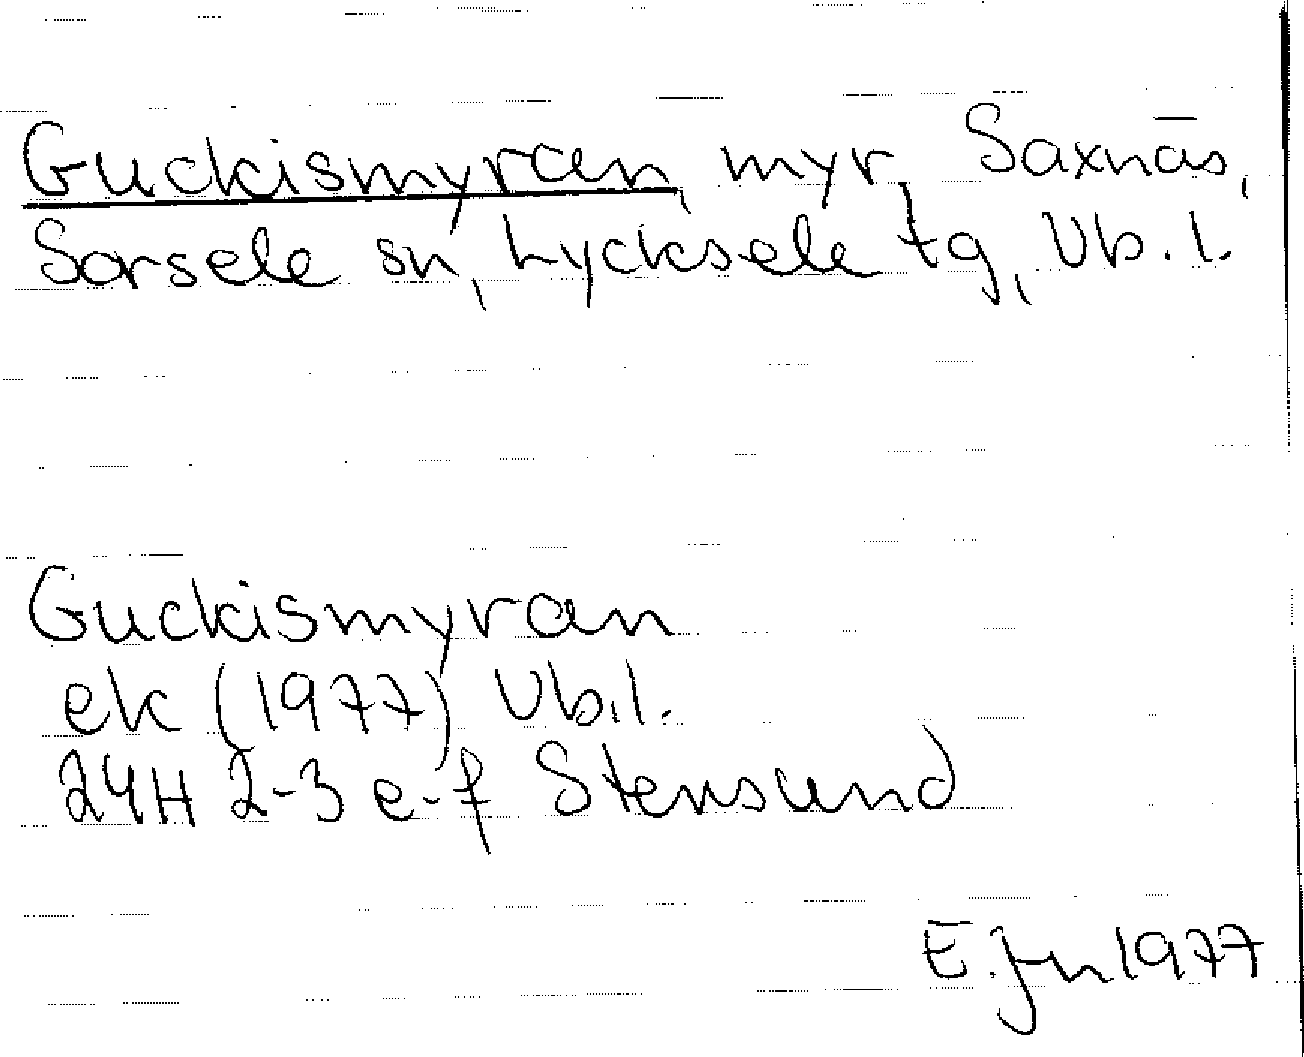 Guckismyran, myr, Saxnäs,
Sorsele sn, Lycksele tg, Vb. l.
Guckismyran
ek (1977) Vb.l.
24H 2-3 e-f Stensund
E. Jn 1977